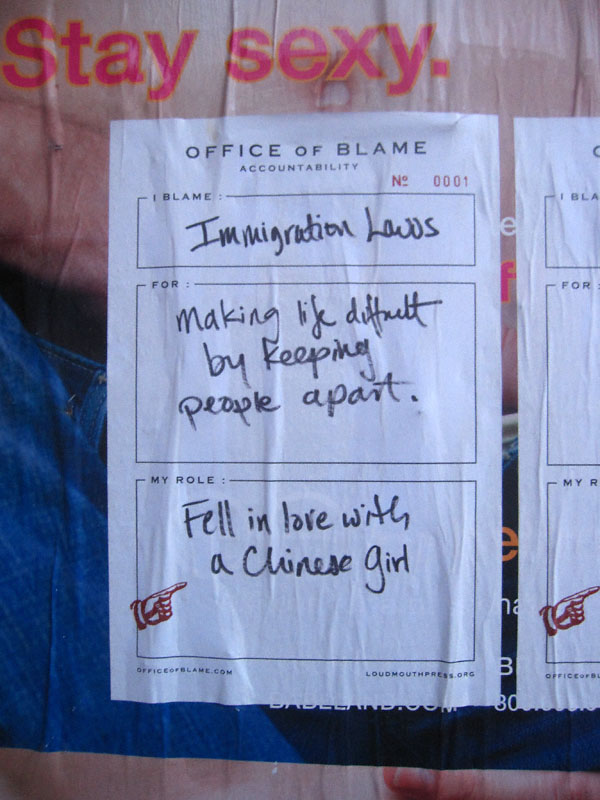 Stay sexy.
OFFICE OF BLAME
ACCOUNTABILITY
Nº 0001
I BLAME :
Immigration Laws
FOR :
making life difficult
by keeping
people apart.
MY ROLE :
Fell in love with
a Chinese girl
OFFICEOFBLAME.COM
LOUDMOUTHPRESS.ORG
I BLA
FOR :
MY R
OFFICEOFBL
BABELAND.COM